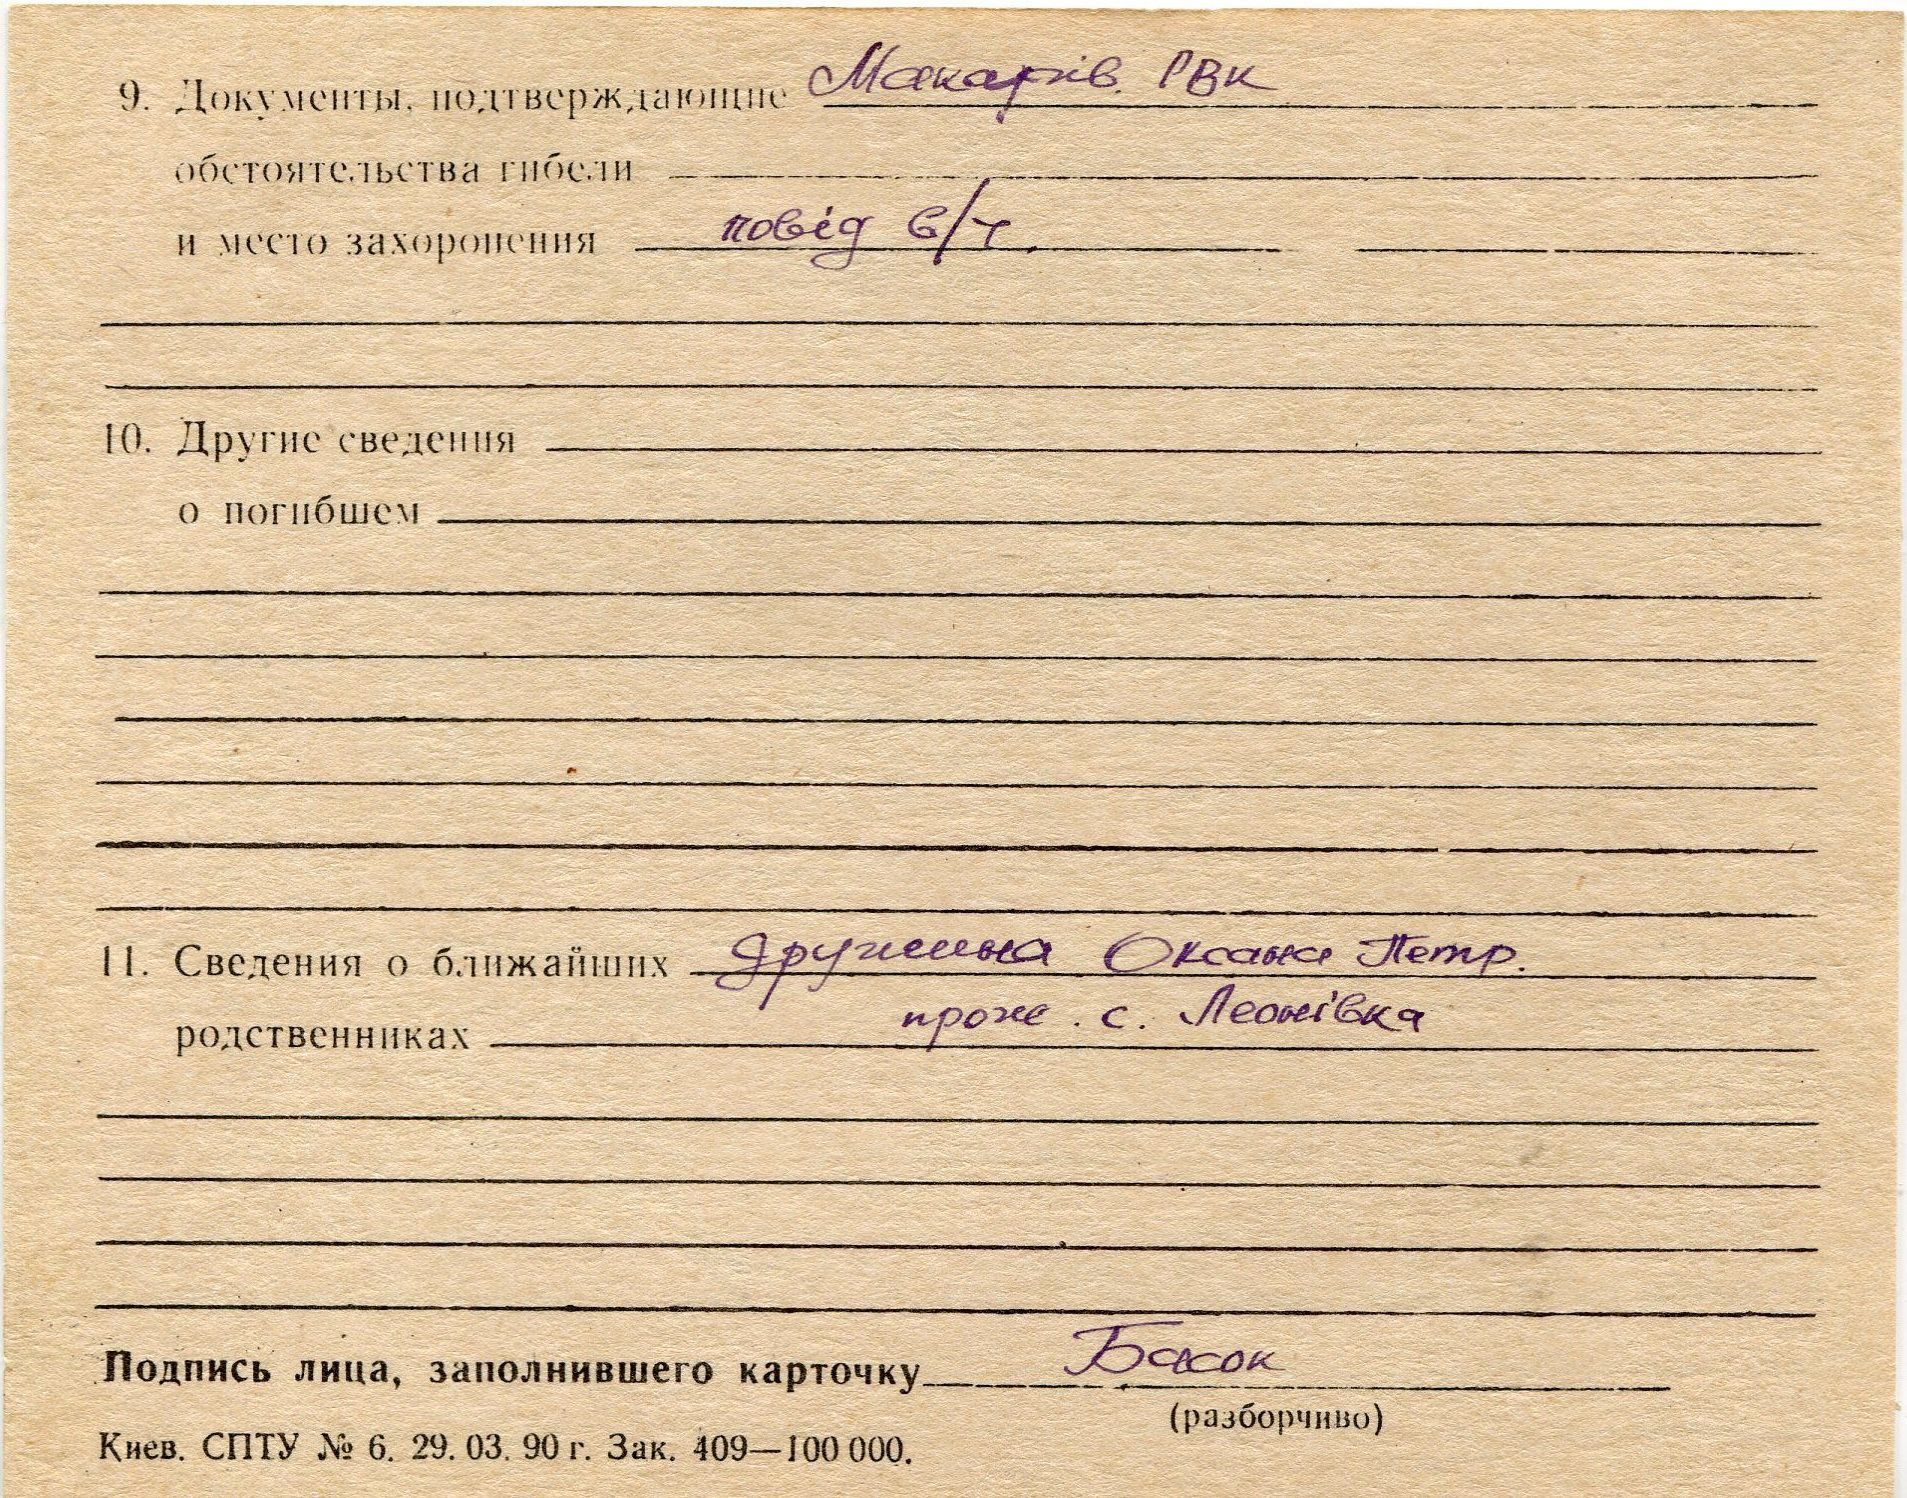 9. Документы, подтверждающие Макарів. РВК
обстоятельства гибели
и место захоронения повід в/ч.
10. Другие сведения
о погибшем
11. Сведения о ближайших дружина Оксана Петр.
родственниках прож. с. Леонівка
Подпись лица, заполнившего карточку Басок
(разборчиво)
Киев. СПТУ № 6. 29. 03. 90 г. Зак. 409—100 000.